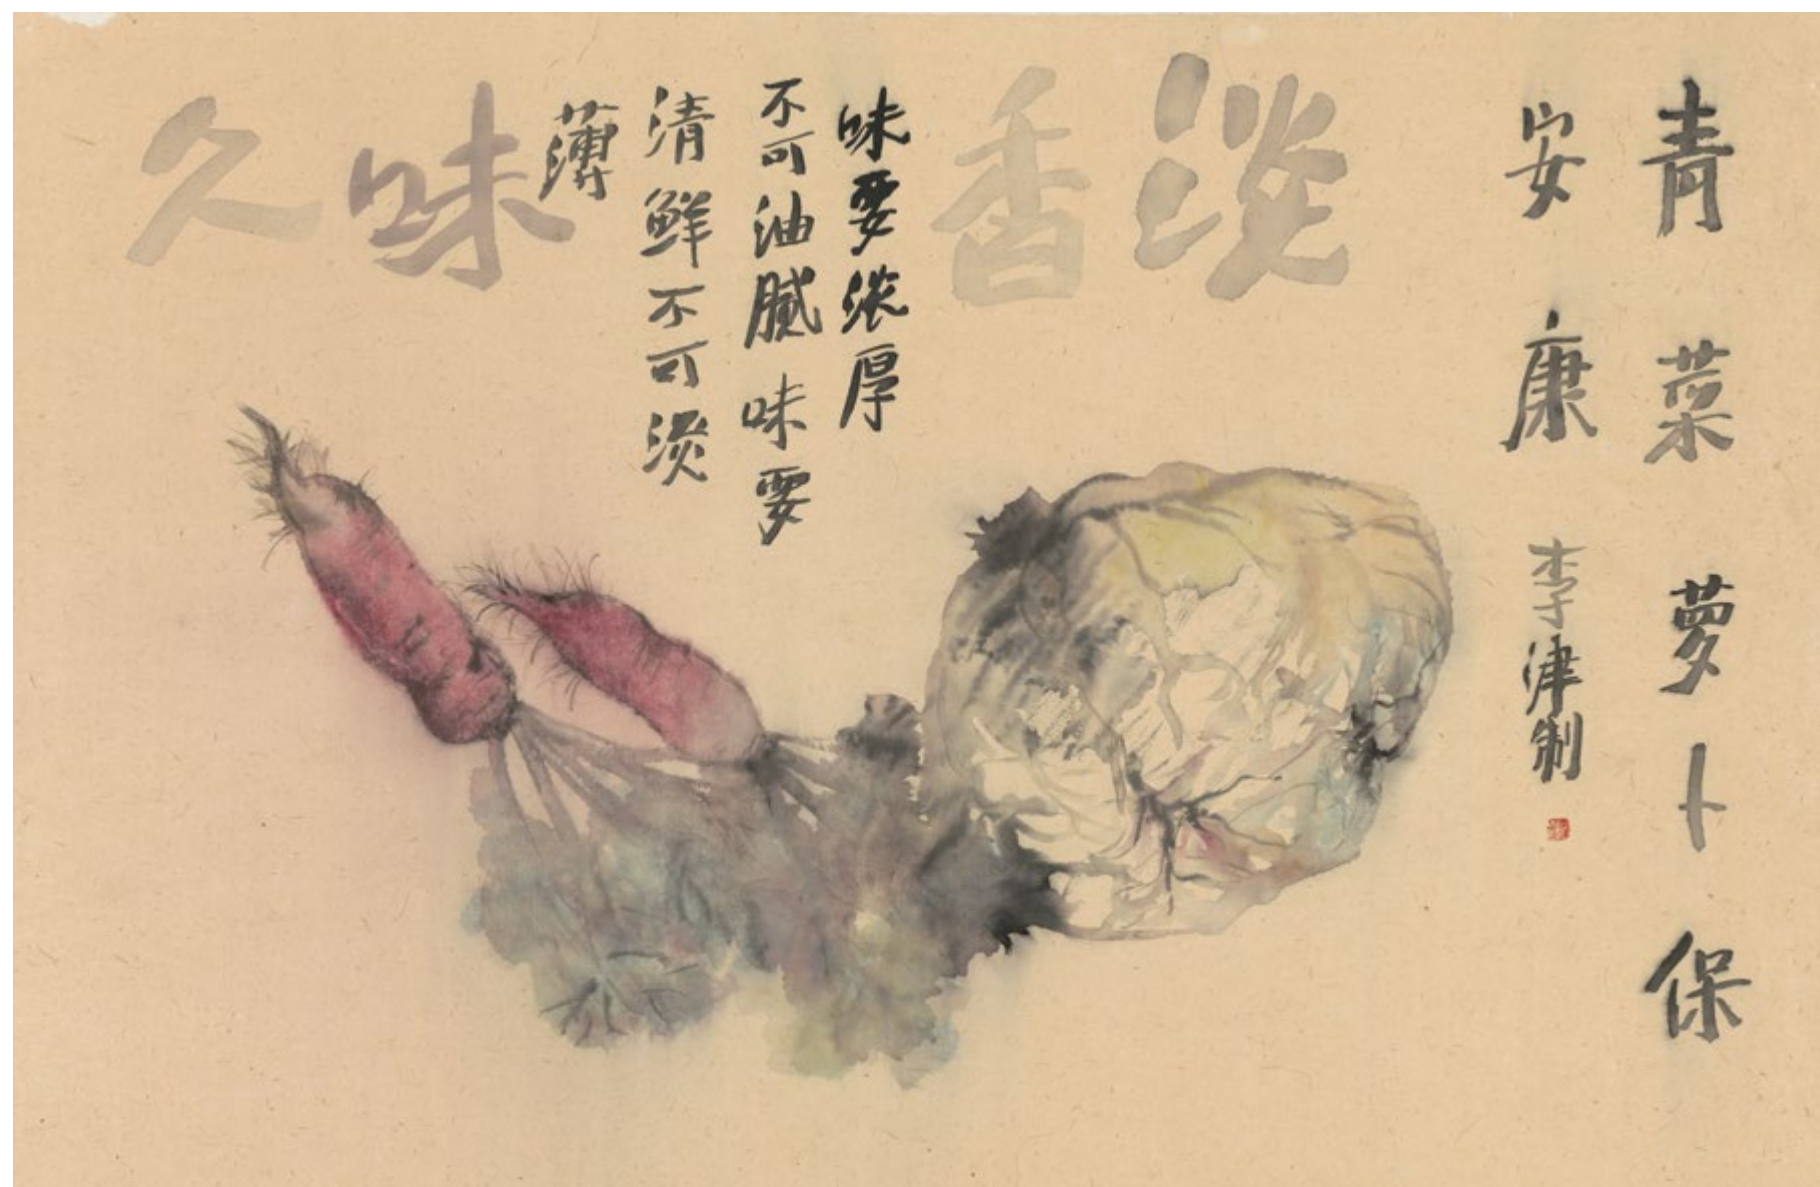 青菜萝卜保
安康 李津制
淡香味久
味要浓厚
不可油腻味要
清鲜不可淡
薄